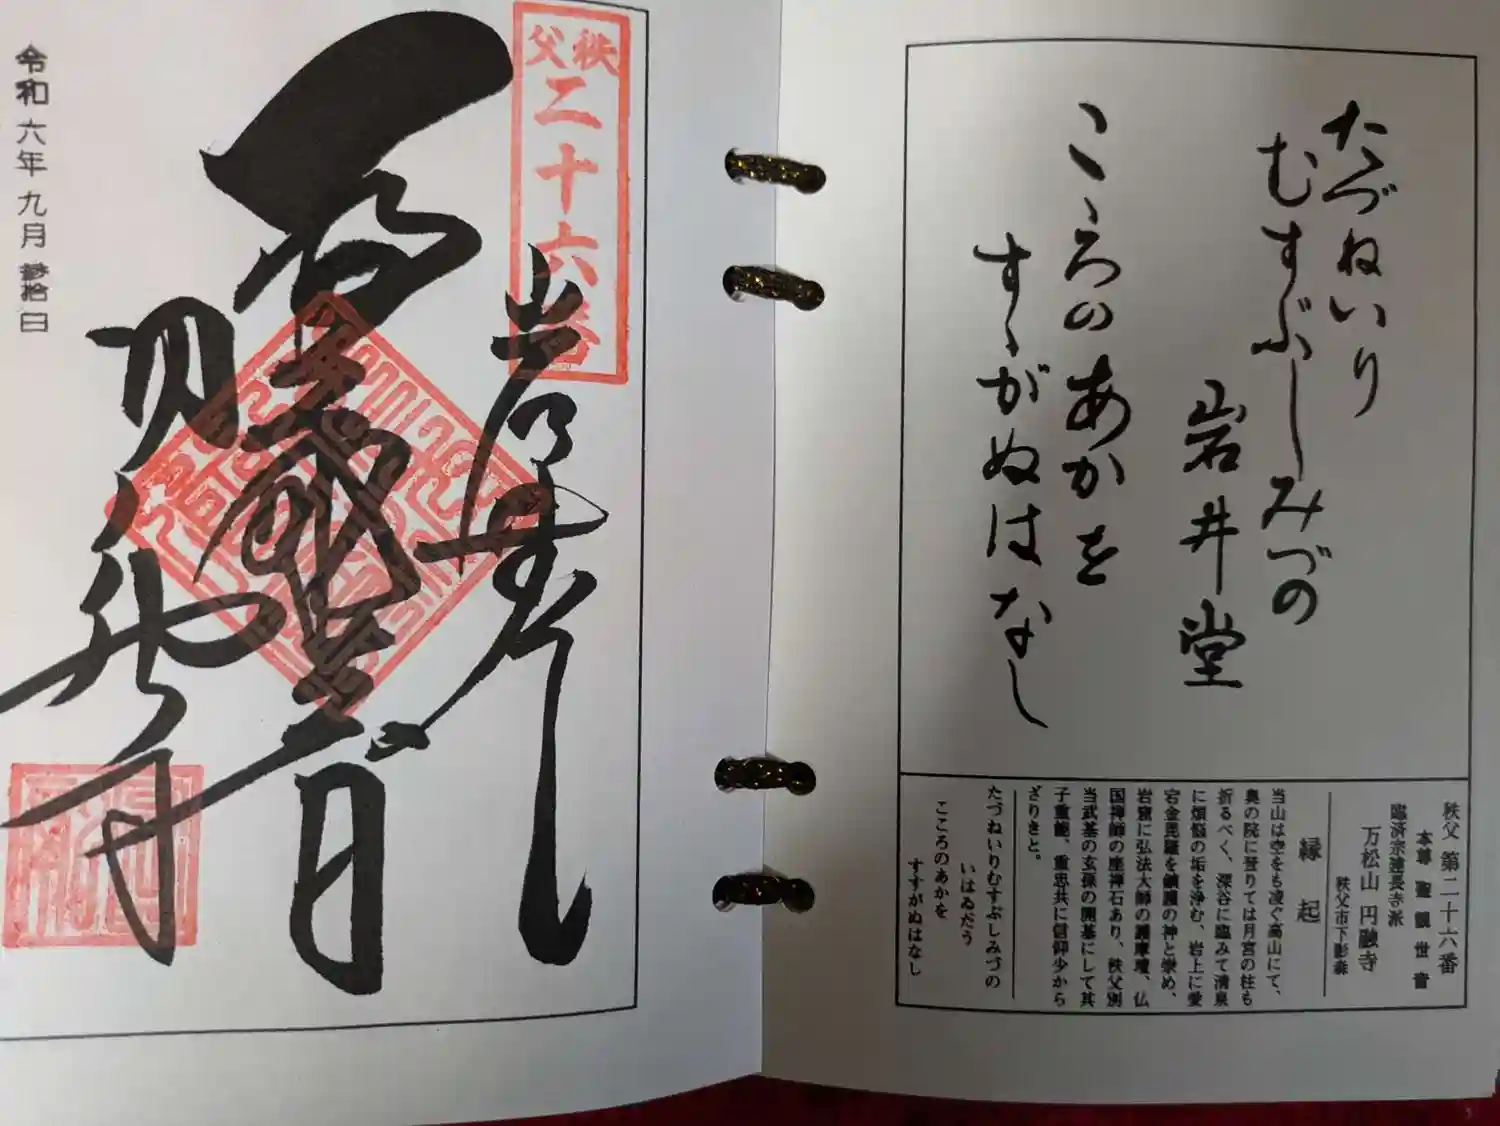 たづねいり
むすぶしみづの
岩井堂
こゝろのあかを
すゝがぬはなし
秩父 第二十六番
本尊 聖観世音
臨済宗建長寺派
万松山 円融寺
秩父市下影森
縁起
当山は空をも凌ぐ高山にて、
奥の院に登りては月宮の桂も
折るべく、深谷に臨みて清泉
に煩悩の垢を浄む、岩上に愛
宕金毘羅を鎮護の神と崇め、
岩窟に弘法大師の護摩壇、仏
国禅師の座禅石あり、秩父別
当武基の玄孫の開基にして其
子重能、重忠共に信仰少から
ざりきと。
たづねいりむすぶしみづの
いはゐだう
こころのあかを
すすがぬはなし
秩父
二十六番
岩井堂
令和六年九月参拾日